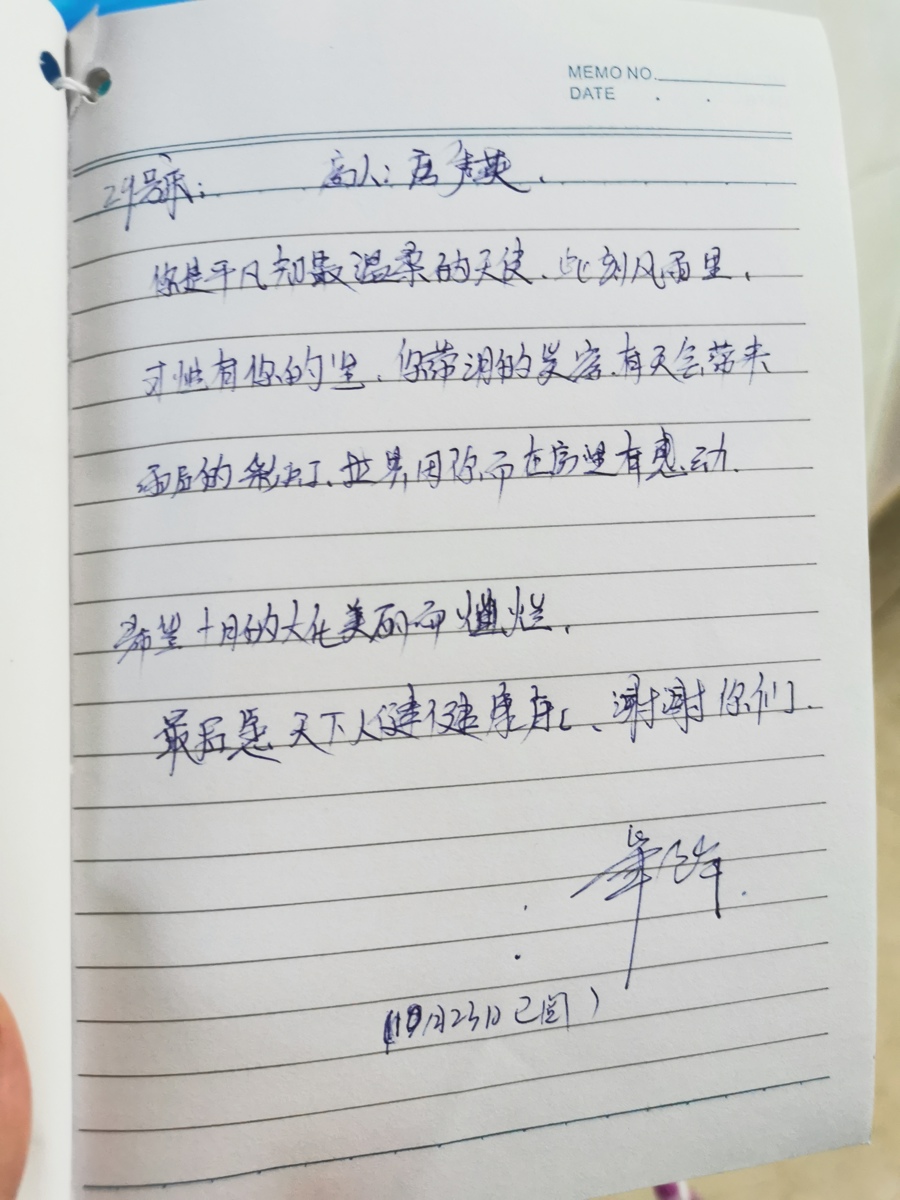 MEMO NO.
DATE
29号床:
你是平凡却最温柔的天使、此刻风雨里,
才懂有你的坚、你带泪的笑容、有天会带来
雨后的彩虹、世界因你而在这里有感动.
希望十月的大化美丽而灿烂,
最后愿天下人健健康康、谢谢你们.
(10月23日已图)